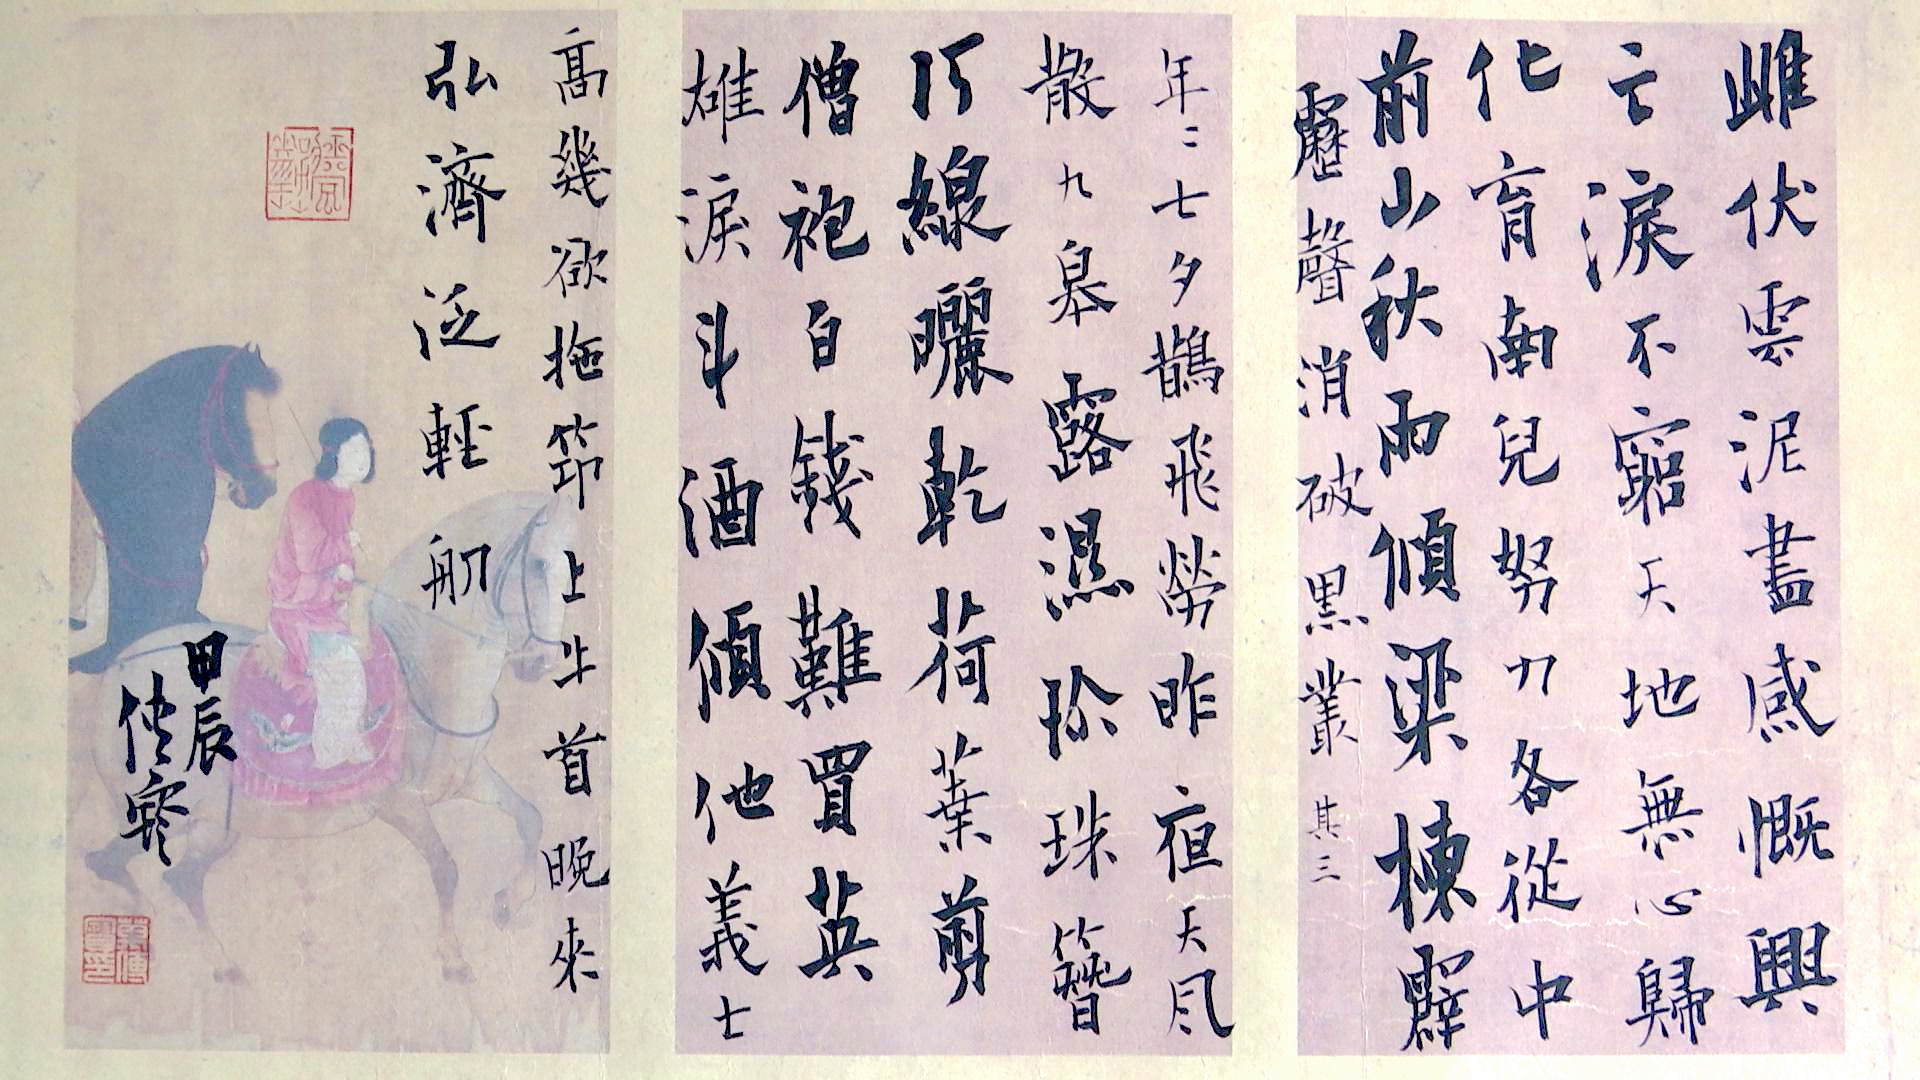 雌伏雲泥盡感慨興
亡淚不窮天地無心歸
化育南兒努力各從中
前山秋雨傾梁棟霹
靂聲消破黑叢其三
年二七夕鵲飛勞昨夜天風
散九皋露濕珍珠簪
線曬乾荷葉剪
僧袍白錢難買英
雄淚斗酒傾他義士
高幾欲拖笻上牛首晚來
弘濟泛輕舠
甲辰